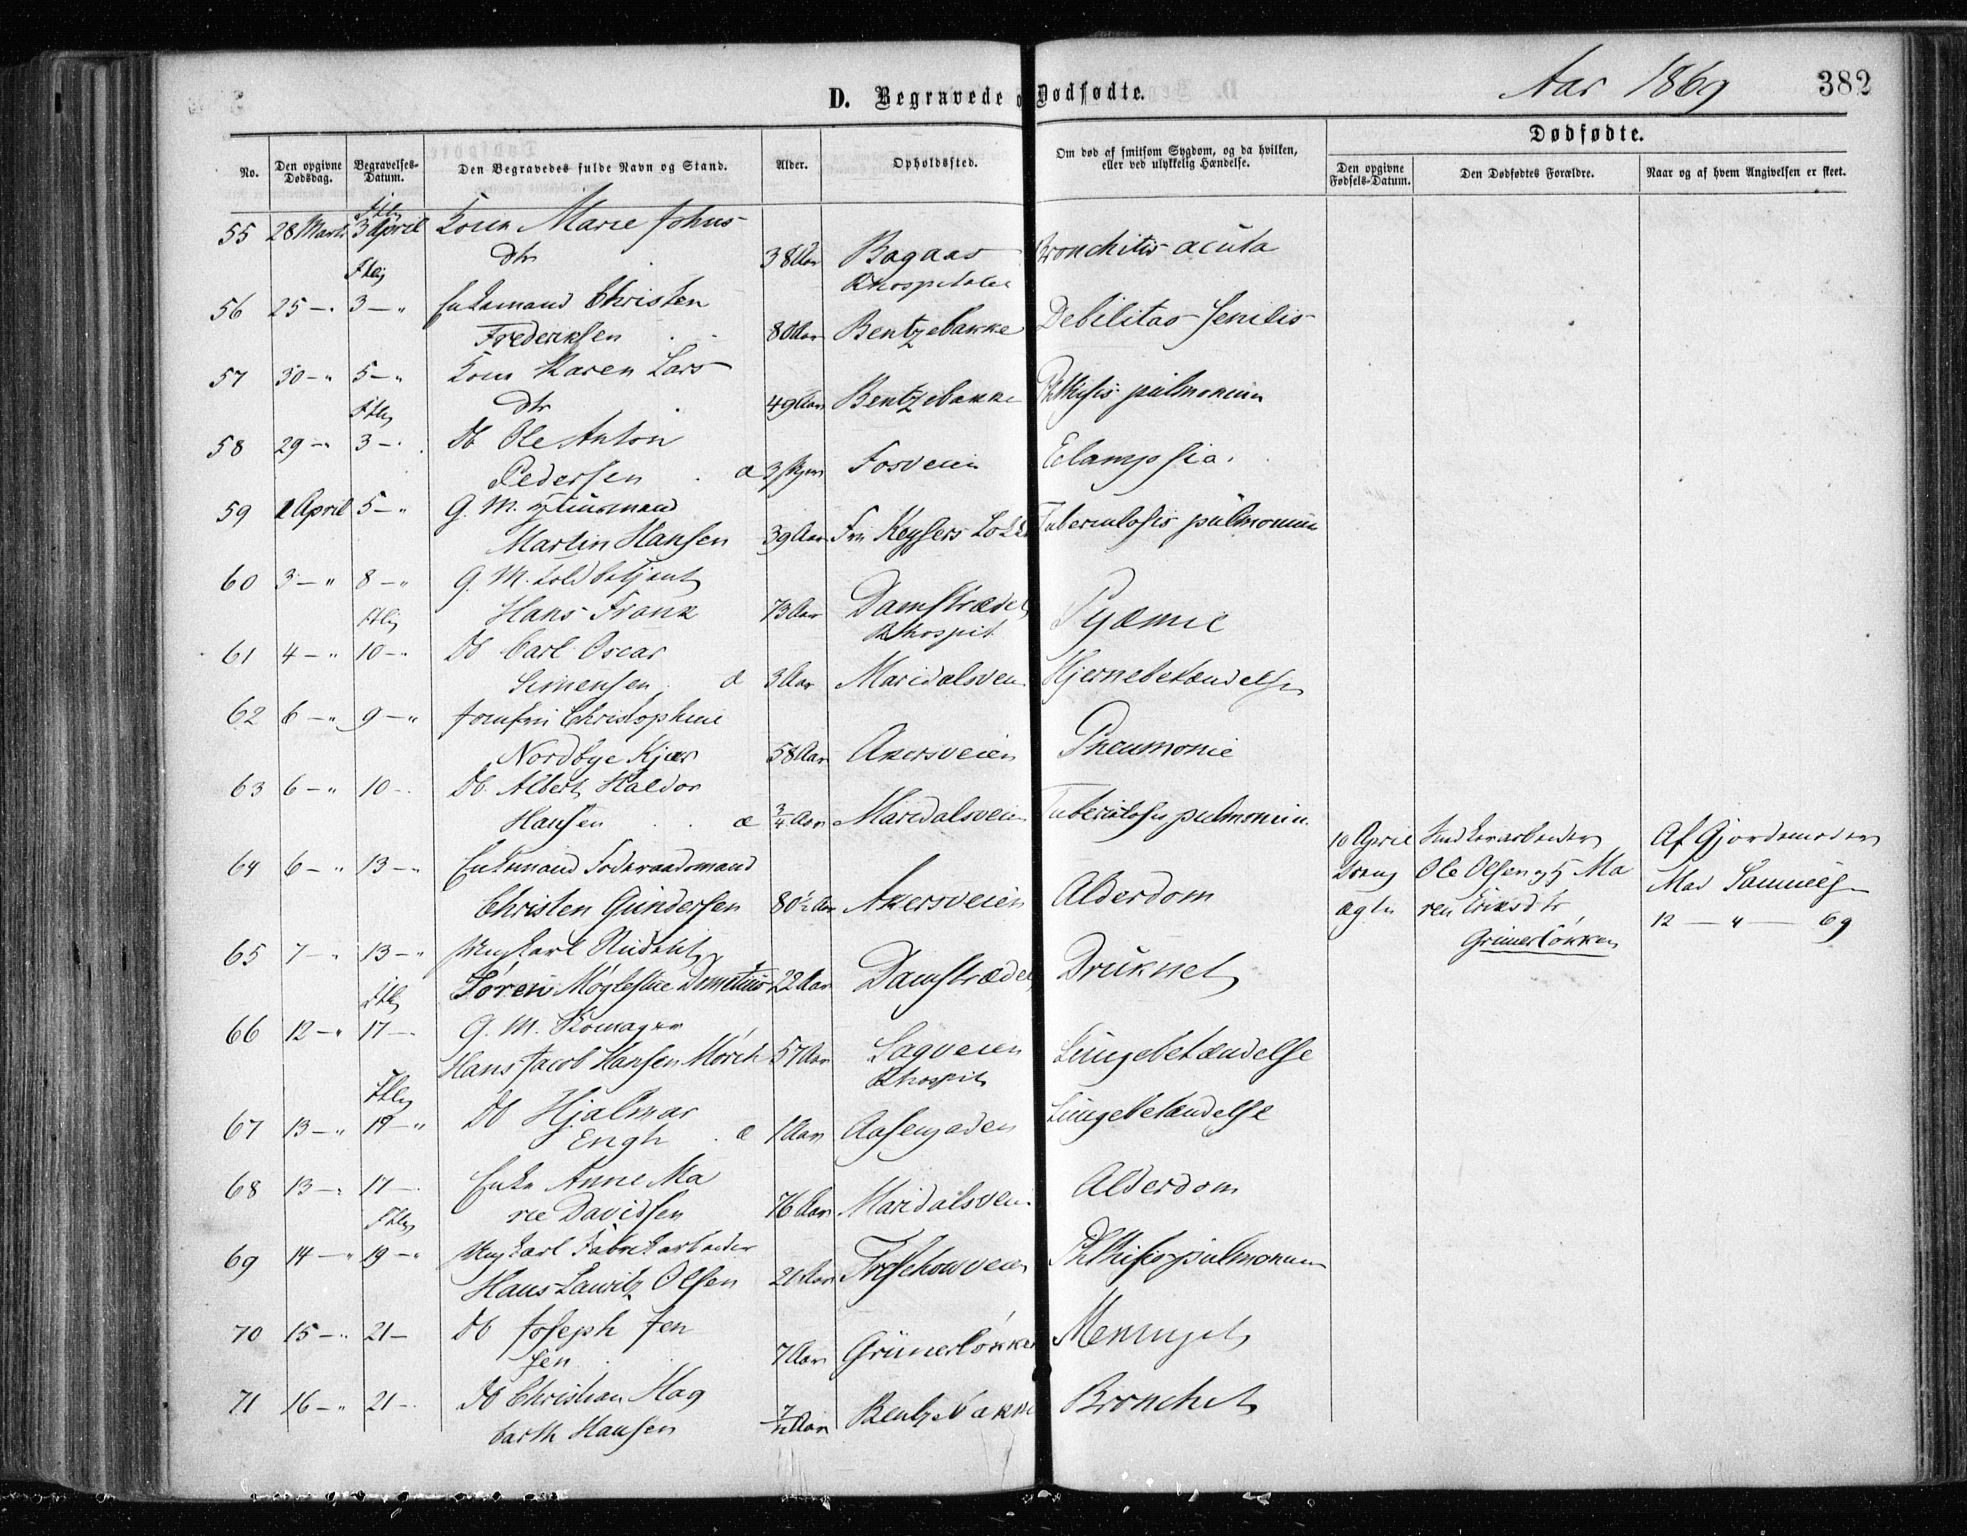 Aar 1869 382
D. Begravede o Dødfødte.
Dødfødte.
No. Den opgivne Dødsdag. Begravelses-Datum. Den Begravedes fulde Navn og Stand. Alder. Opholdssted. Om død af smitsom Sygdom, og da hvilken, eller ved ulykkelig Hændelse. Den opgivne Fødsels-Datum. Den Dødfødtes Forældre. Naar og af hvem Angivelsen er skeet.
55 28 Marts 3 April Kone Marie Johns
dtr 38 Aar Bagaas Bronchitis acuta
Rhospitalet
56 25 - " 3 - " Enkemand Christen
Frederiksen 80 Aar Bentzebakke Debilitas senilis
57 30 - " 5 - " Kone Karen Lars
dtr 49 Aar Bentzebakke Phthisis pulmonum
58 29 - " 3 - " Db Ole Anton
Pedersen æ 3 Ole Fosveien Eclampsia.
59 1 April 5 - " G. M. Huusmand
Martin Hansen 39 Aar Fru Keysers Løkke Tuberculosis pulmonum
60 3 - " 8 - " G. M. Toldbetjent
Hans Frank 73 Aar Damstrædet Pyæmie
Rhospit
61 4 - " 10 - " Db Carl Oscar
Simensen æ 3 Aar Maridalsvei Hjernebetændelse
62 6 - " 9 - " Jomfru Christophine
Nordbye Kjær 58 Aar Akersveien Pneumonie
63 6 - " 10 - " Db. Albert Haldor
Hansen æ 3/4 Aar Maridalsveien Tuberculosis pulmonum
64 6 - " 13 - " Enkemand Foderaadsmand
Christen Gundersen 80½ Aar Akersveien Alderdom
10 April Snekkerarbeider Af Gjordemoder
Dreng Ole Olsen og Ma Mad
ægte ren Eriksdtr 12 - " - 69
Grünerløkken
65 7 - " 13 - " Ungkarl Student
Søren Møglestue Dometius 22 Aar Damstrædet Druknet
66 12 - " 17 - " G. M. Skomager
Hans Jacob Hansen Mørch 57 Aar Sagveien Lungebetændelse
Rhospit
67 13 - " 19 - " Db Hjalmar
Engh æ 1 Aar Aasengaden Lungebetændelse
68 13 - " 17 - " Enke Anne Ma
rie Davidsen 76 Aar Maridalsvei Alderdom
69 14 - " 19 - " Ungkarl Fabrikarbeider
Hans Lauritz Olsen 20 Aar Treschowveien Phthisis pulmonum
70 15 - " 21 - Db Joseph Jen
sen 7 Aar Grünerløkken Meningit
71 16 - " 21 - " Db Christian Hag
barth Hansen 7/12 Aar Bentzebakke Bronchit